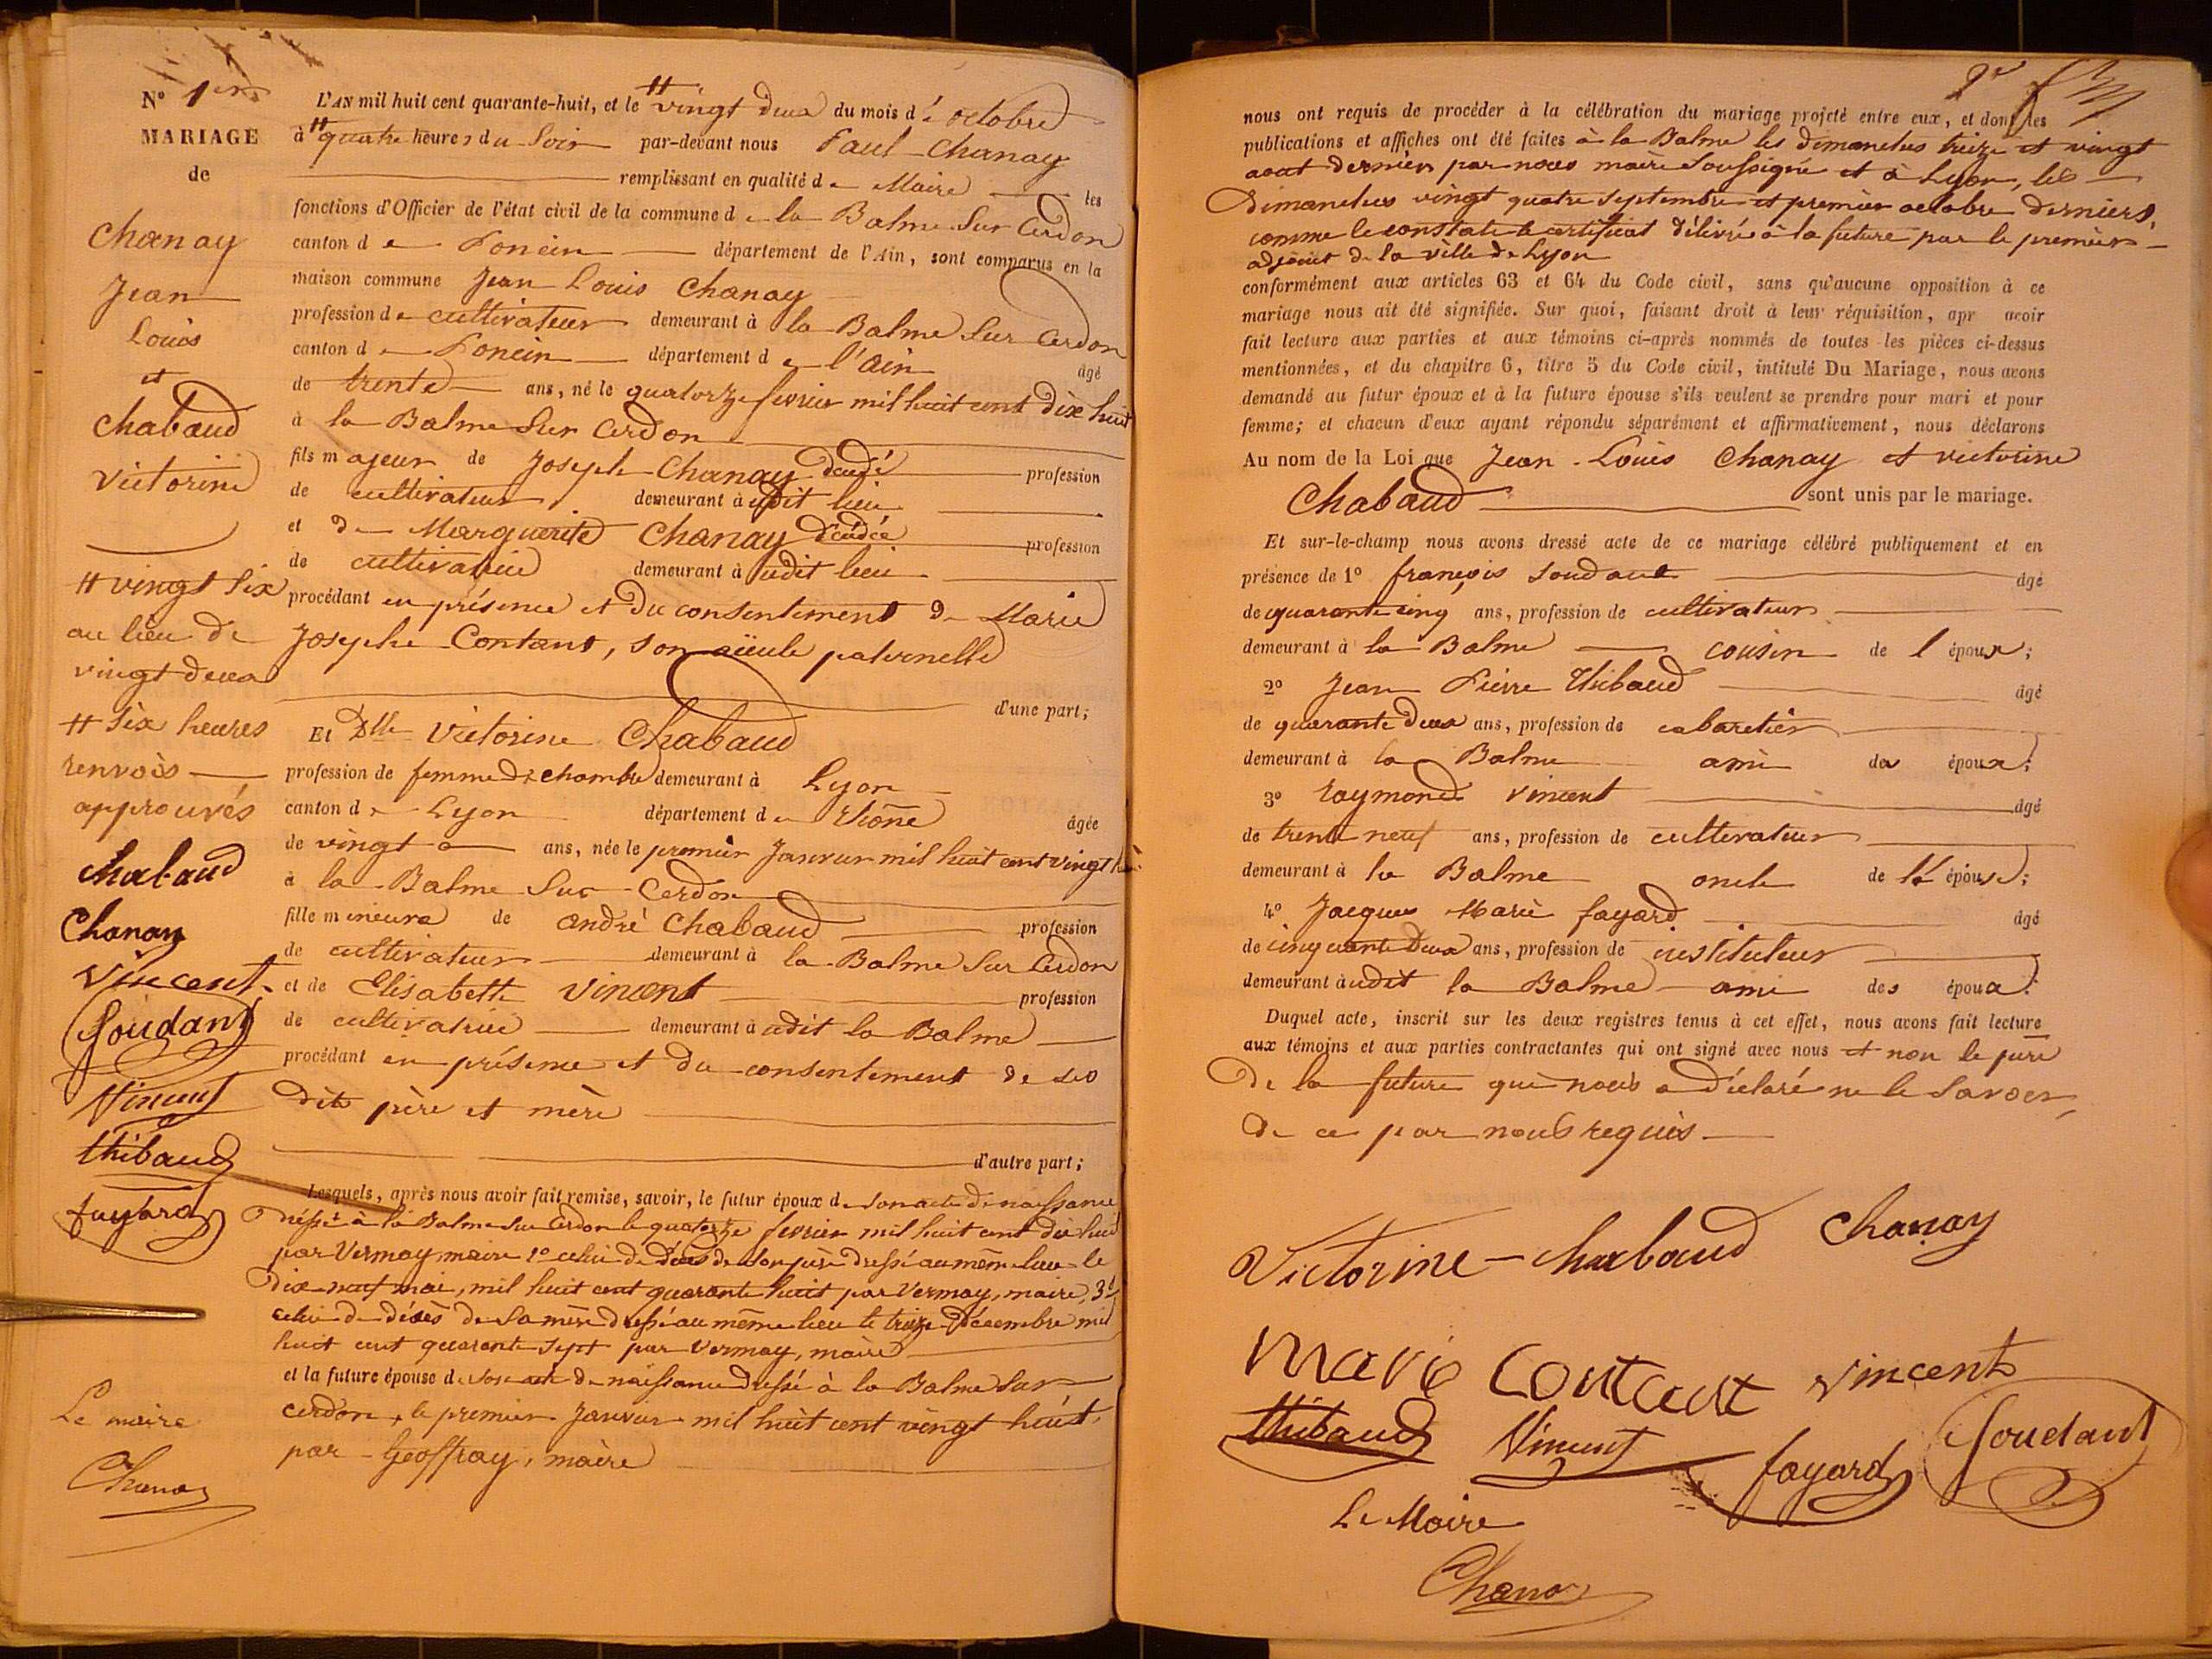 N° 1er
MARIAGE
de
Chanay
Jean
Louis
et
Chabaud
Victorine
# vingt six
au lieu de
vingt deux
# six heures
renvois
approuvés
Chabaud
Chanay
Vincent
Soudant
Vincent
Thibaud
fayard
Le maire
Chanay
L'AN mil huit cent quarante-huit, et le # vingt deux du mois d'octobre
à # quatre heures du Soir par-devant nous Paul Chanay
remplissant en qualité de Maire les
fonctions d'Officier de l'état civil de la commune de la Balme Sur Cerdon
canton de Poncin département de l'Ain, sont comparus en la
maison commune Jean Louis Chanay
profession de cultivateur demeurant à la Balme Sur Cerdon
canton de Poncin département de l'Ain âgé
de trente ans, né le quatorze fevrier mil huit cent dix huit
à la Balme Sur Cerdon
fils majeur de Joseph Chanay décédé profession
de cultivateur demeurant à udit lieu
et de Marguerite Chanay décédée profession
de cultivatrice demeurant à udit lieu
procédant en présence et du consentement de Marie
Josephe Contant, son aïeule paternelle
d'une part;
Et Dlle Victorine Chabaud
profession de femme de chambre demeurant à Lyon
canton de Lyon département du Rhône âgée
de vingt ans, née le premier Janvier mil huit cent vingt
à la Balme Sur Cerdon
fille mineure de André Chabaud profession
de cultivateur demeurant à la Balme Sur Cerdon
et de Elisabette Vincent profession
de cultivatrice demeurant à udit la Balme
procédant en présence et du consentement de ses
dits père et mère
d'autre part;
Lesquels, après nous avoir fait remise, savoir, le futur époux de son acte de naissance
dressé à la Balme sur Cerdon le quatorze fevrier mil huit cent dix huit
par Vermay, maire 2° celui de décès de son père dressé au même lieu le
dix neuf mai, mil huit cent quarante huit par Vermay, maire, 3°
celui de décès de Sa mère dressé au même lieu le treize Décembre mil
huit cent quarante sept par Vermay, maire
et la future épouse de son acte de naissance dressé à la Balme Sur
Cerdon, le premier Janvier mil huit cent vingt huit,
par Geoffray, maire
2e
nous ont requis de procéder à la célébration du mariage projeté entre eux, et dont les
publications et affiches ont été faites à la Balme les dimanches treize et vingt
aout dernier par nous maire Soussigné et à Lyon, les
Dimanches vingt quatre Septembre et premier octobre derniers,
comme le constate le certificat délivré à la future par le premier
adjoint de la ville de Lyon
conformément aux articles 63 et 64 du Code civil, sans qu'aucune opposition à ce
mariage nous ait été signifiée. Sur quoi, faisant droit à leur réquisition, apr avoir
fait lecture aux parties et aux témoins ci-après nommés de toutes les pièces ci-dessus
mentionnées, et du chapitre 6, titre 5 du Code civil, intitulé Du Mariage, nous avons
demandé au futur époux et à la future épouse s'ils veulent se prendre pour mari et pour
femme; et chacun d'eux ayant répondu séparément et affirmativement, nous déclarons
Au nom de la Loi que Jean Louis Chanay et victorine
Chabaud sont unis par le mariage.
Et sur-le-champ nous avons dressé acte de ce mariage célébré publiquement et en
présence de 1° françois Soudant âgé
de quarante cinq ans, profession de cultivateur
demeurant à la Balme cousin de l époux;
2° Jean Pierre Thibaud âgé
de quarante deux ans, profession de cabaretier
demeurant à la Balme ami des époux;
3° Raymond Vincent âgé
de trente neuf ans, profession de cultivateur
demeurant à la Balme oncle de l'épouse;
4° Jacques Marie fayard âgé
de cinquante deux ans, profession de instituteur
demeurant à udit la Balme ami des époux.
Duquel acte, inscrit sur les deux registres tenus à cet effet, nous avons fait lecture
aux témoins et aux parties contractantes qui ont signé avec nous et non le père
De la future qui nous a déclaré ne le Savoir,
de ce par nous requis
Victorine Chabaud Chanay
Marie Contant Vincent
Thibaud Vincent fayard Soudant
Le Maire
Chanay